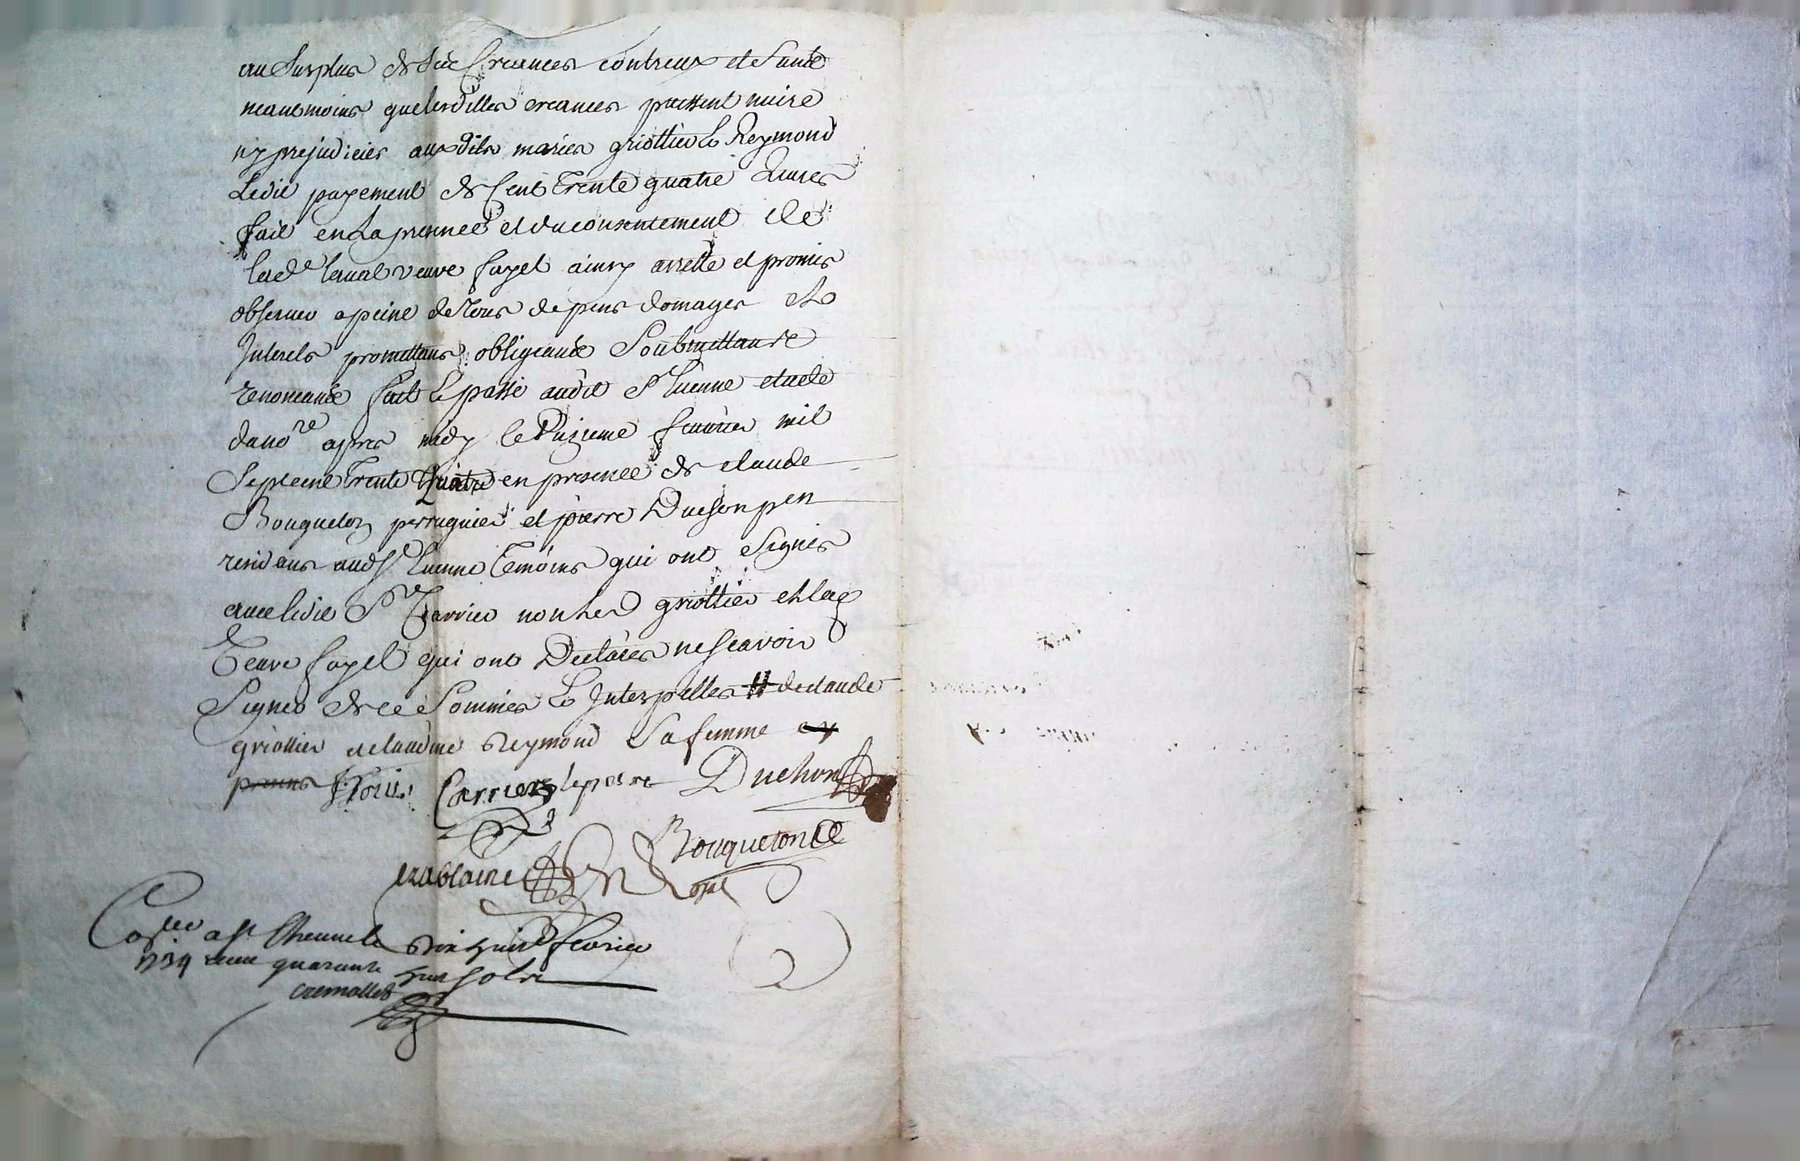 au surplus de ses creances contreux et sans
neantmoins que lesdittes creances puissent nuire
ny prejudicier auxdits maries griottier & Reymond
Ledit payement de cent trente quatre Livres
fait en La presence et du consentement de
lad.e laval veuve fayel ainsy arretté et promis
observer a peine de tous depens domages &
Interets promettans obligeants Soubmettants
renonceants fait & passé audit St Etienne etude
dud no.re apres midy le seizieme fevrier mil
Septcent trente quatre en presence de claude
Bouqueton perruquier et pierre Duchon pen
residans aud St Etienne temoins qui ont Signés
avec ledit Sr Carrier non led griottier et lad
veuve fayel qui ont Declarés ne scavoir
Signer de ce Sommés & Interpellés # de claude
griottier et claudine Reymond Sa femme
trois Carrier lepretre Duchon
Bouqueton
Controllé a St Etienne le Dix huit fevrier
1734 recu quarante huit sols